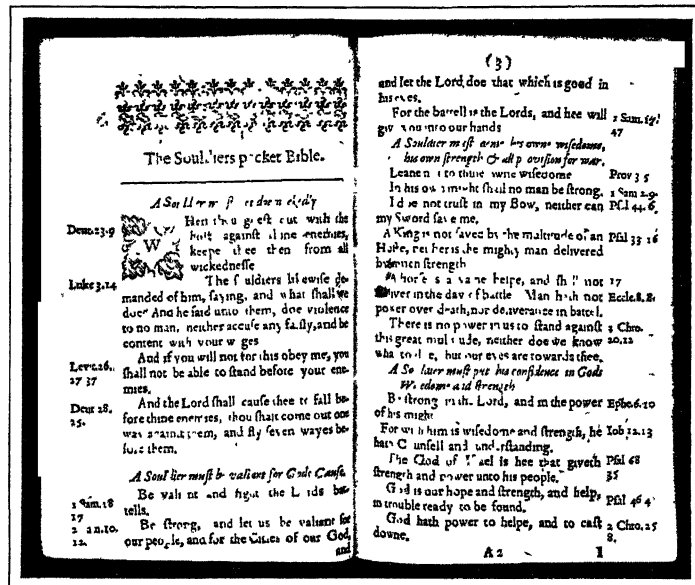 The Souldiers pocket Bible.
A Souldier must not doe wickedly
Deut.23.9 When thou goest out with the
host against thine enemies,
keepe thee then from all
wickednesse
Luke 3.14 The Souldiers likewise de-
manded of him, saying, and what shall we
doe? And he said unto them, doe violence
to no man, neither accuse any falsly, and be
content with your wages
Levit.26. And if you will not for this obey me, you
27 37 shall not be able to stand before your ene-
mies.
Deut 28. And the Lord shall cause thee to fall be-
25. fore thine enemies, thou shalt come out one
way against them, and fly seven wayes be-
fore them.
A Souldier must be valiant for Gods Cause.
1 Sam.18 Be valiant and fight the Lords bat-
17 tells.
2 Sam.10. Be strong, and let us be valiant for
12. our people, and for the Cities of our God,
and
(3)
and let the Lord doe that which is good in
his eyes.
For the battell is the Lords, and hee will 1 Sam.17
give you into our hands 47
A Souldier must denie his owne wisedome,
his own strength & all provision for war.
Leane not to thine owne wisedome Prov 3 5
In his own might shall no man be strong. 1 Sam 2.9.
I doe not trust in my Bow, neither can Psal 44.6.
my Sword save me.
A King is not saved by the multitude of an Psal 33 16
Hoste, neither is the mighty man delivered
by much strength
A horse is a vaine helpe, and shall not 17
deliver in the day of battle Man hath not Eccle.8.8.
power over death, nor deliverance in battel.
There is no power in us to stand against 2 Chro.
this great multitude, neither doe we know 20.12
what to doe, but our eyes are towards thee.
A Souldier must put his confidence in Gods
Wisedome and strength
Be strong in the Lord, and in the power Ephe.6.10
of his might
For with him is wisedome and strength, he Iob 12.13
hath Counsell and understanding.
The God of Israel is hee that giveth Psal 68
strength and power unto his people. 35
God is our hope and strength, and help, Psal 46 4
in trouble ready to be found.
God hath power to helpe, and to cast 2 Chro.25
downe. 8.
A2 1